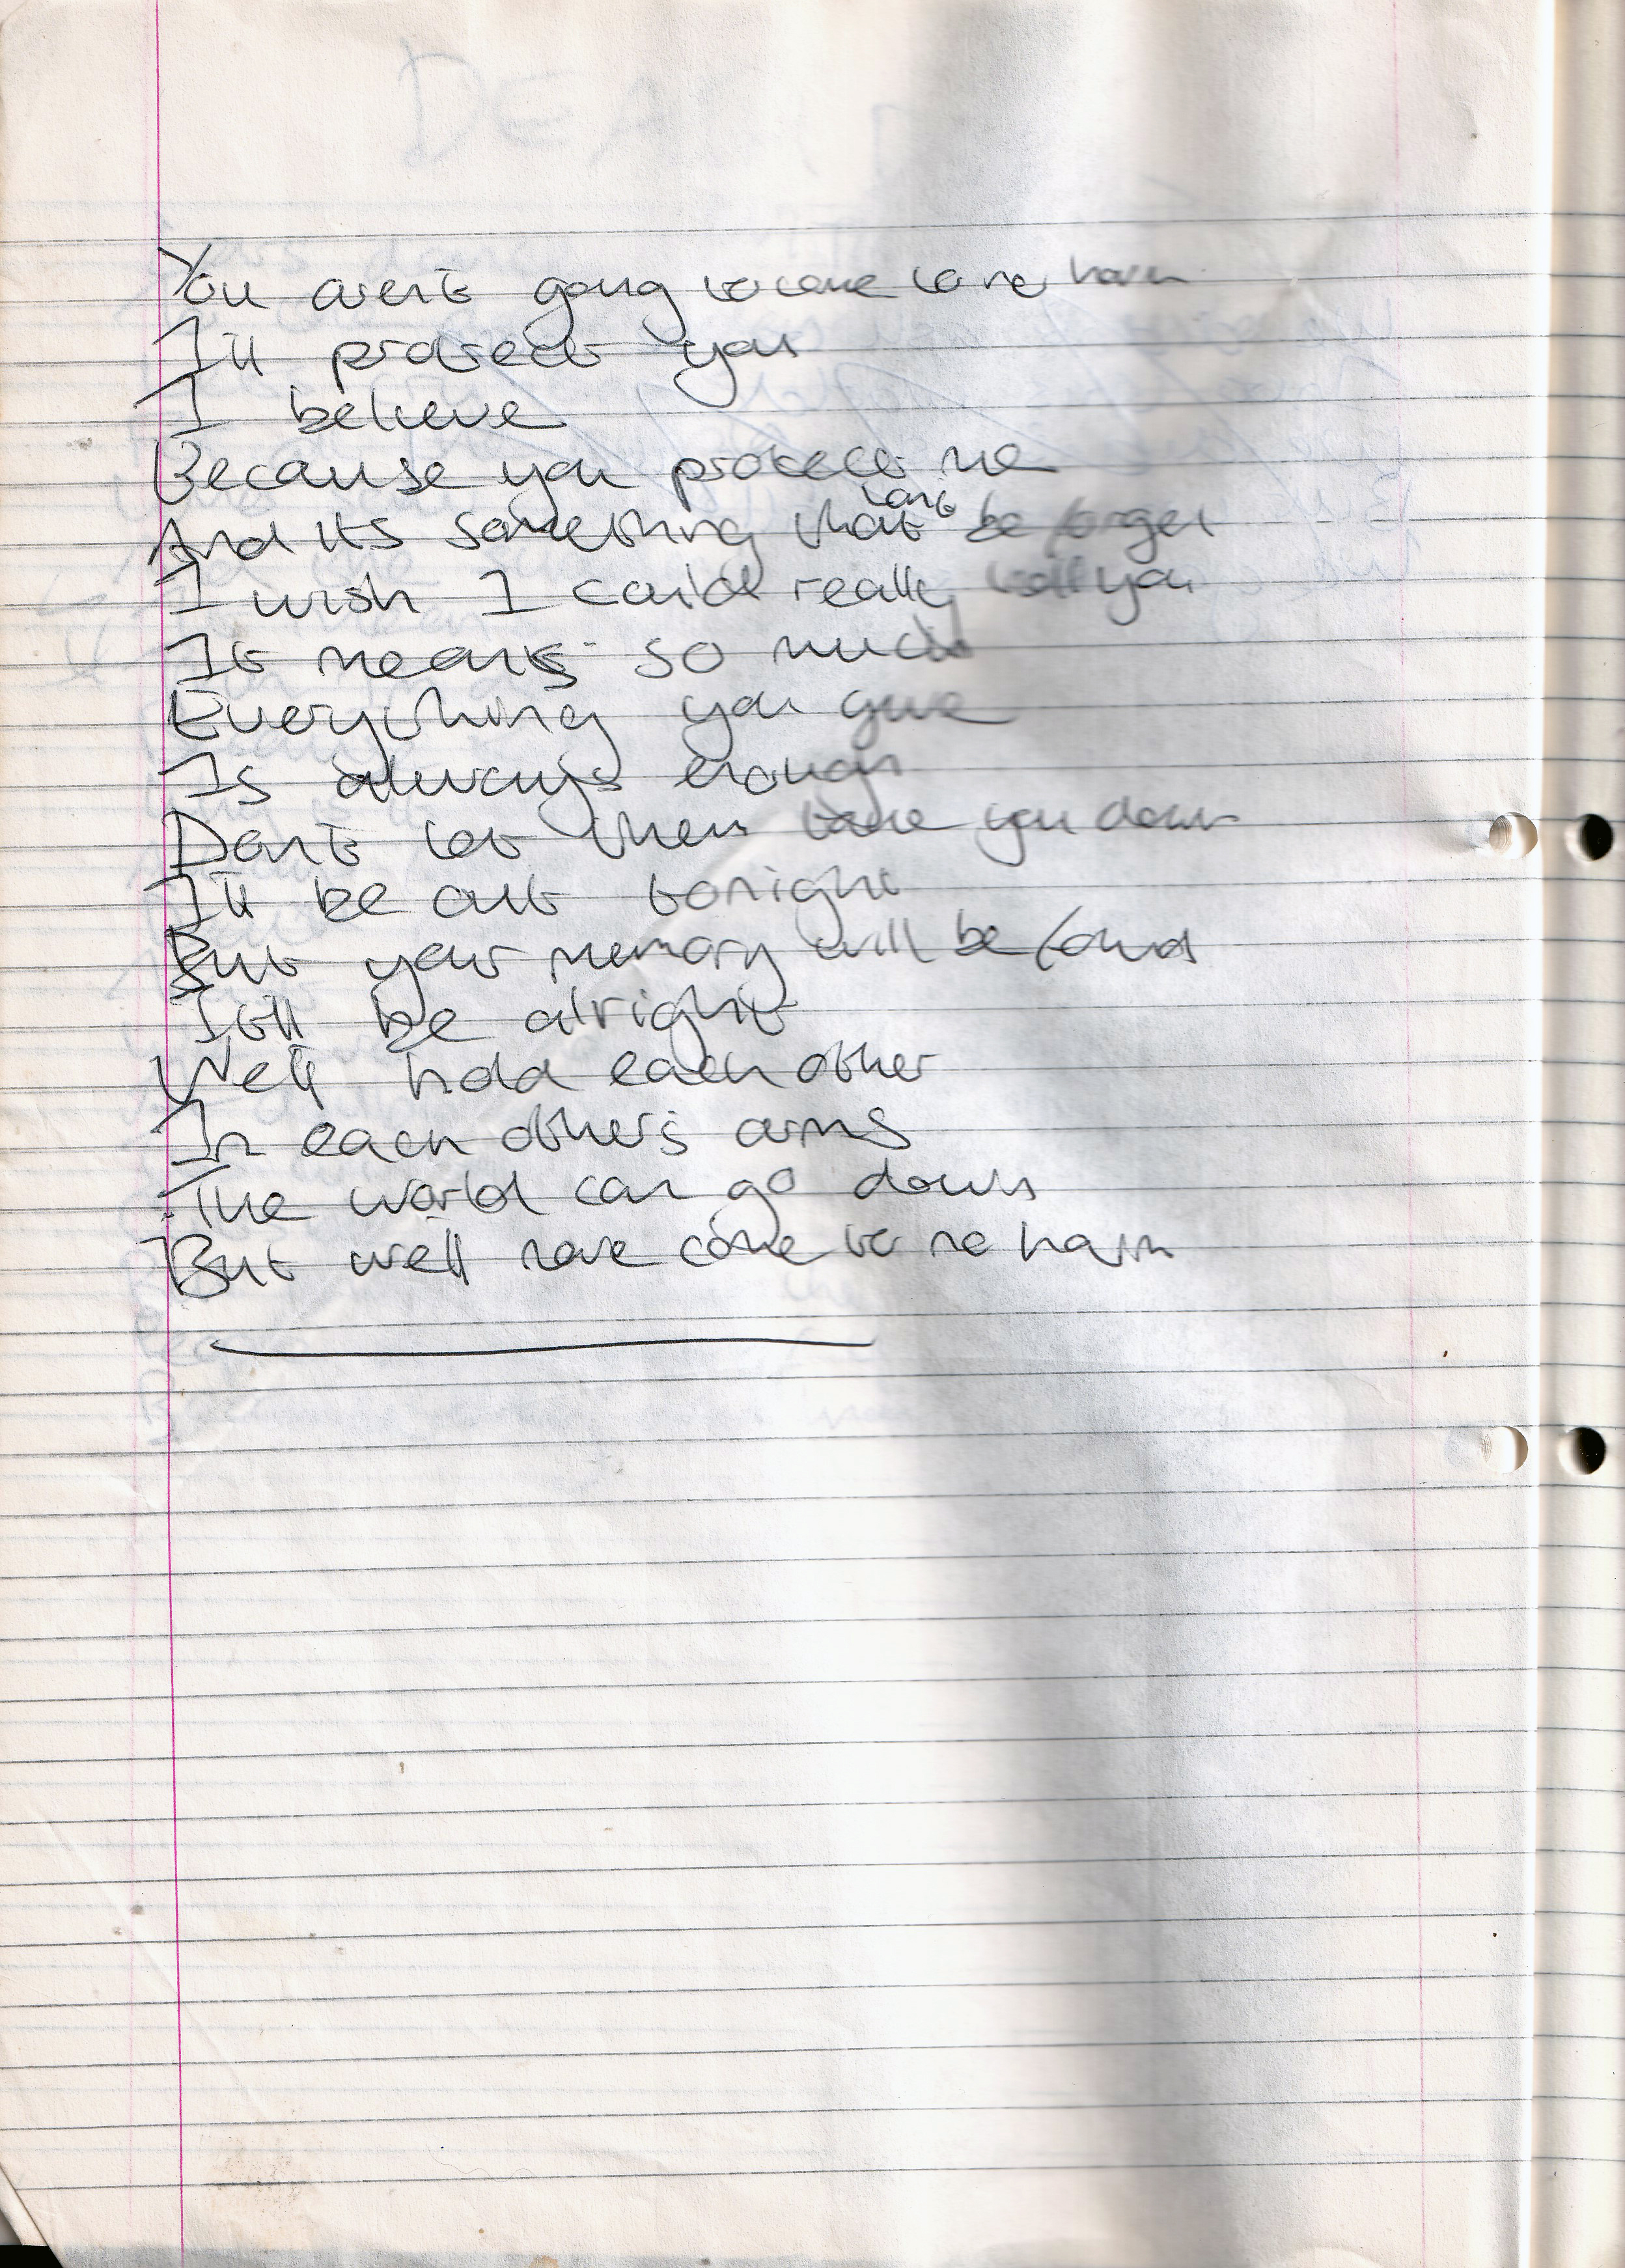 You aren't going to come to no harm
I'll protect you
I believe
Because you protect me
And its something that can't be forget
I wish I could really tell you
It means so much
Everything you give
Is always enough
Don't let them take you down
I'll be out tonight
But your memory will be found
It'll be alright
We'll hold each other
In each other's arms
The world can go down
But we'll have come to no harm